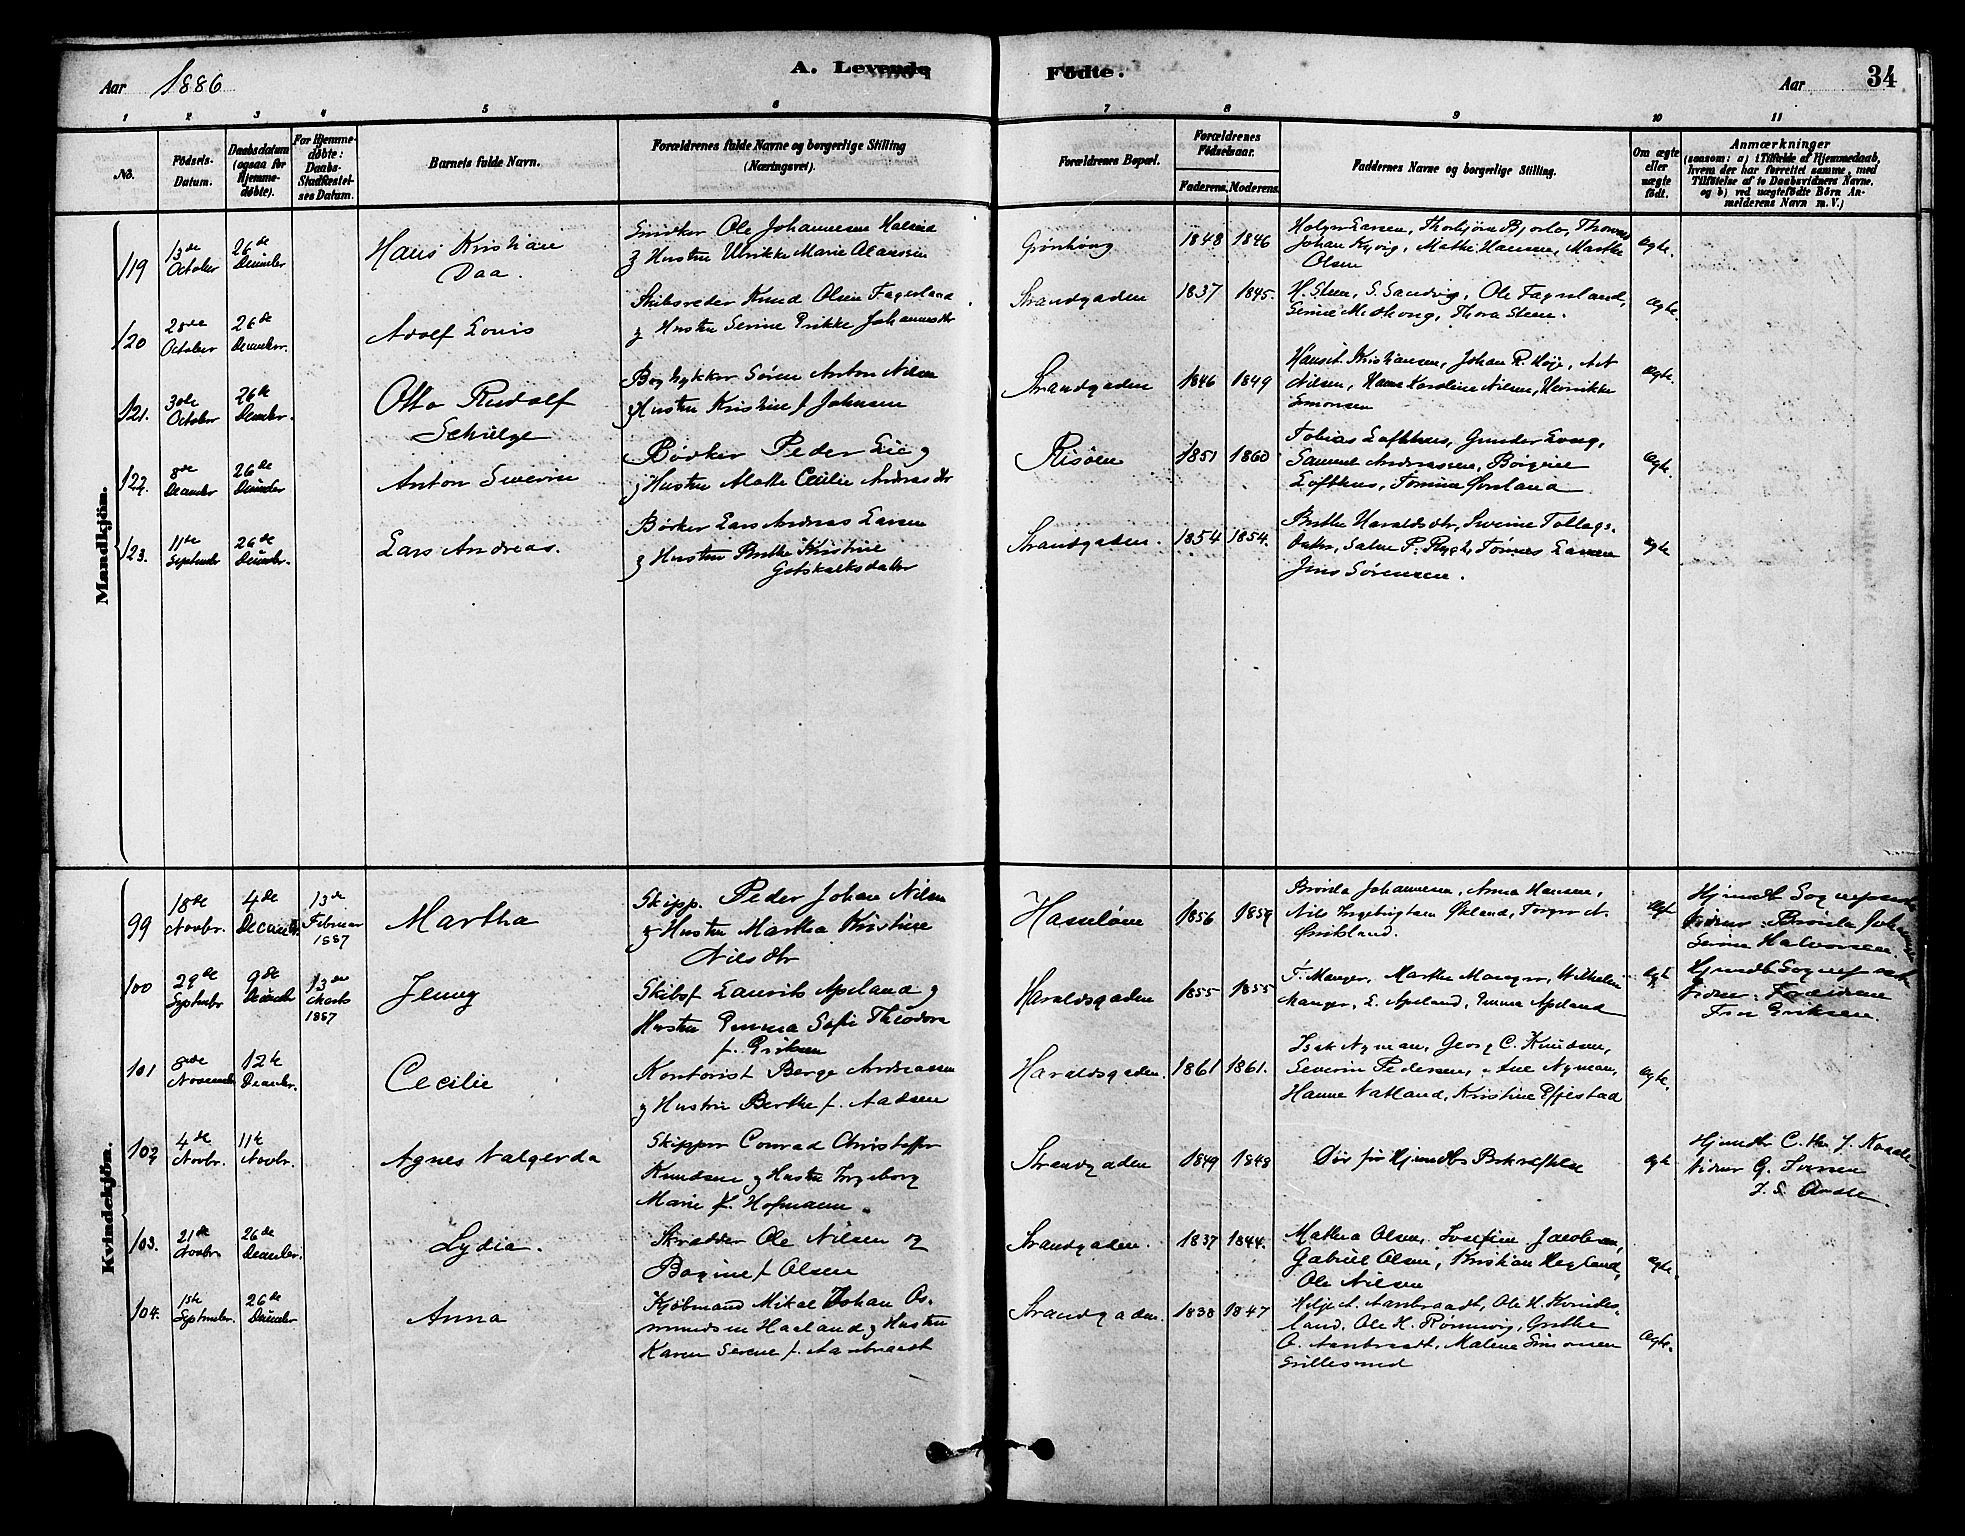 Aar 1886
A. Levende Fødte.
Aar 34
1 2 3 4 5 6 7 8 9 10 11
No.
Fødsels-
Datum.
Daabsdatum
(ogsaa for
Hjemme-
døbte).
For Hjemme-
døbte:
Daabs-
Stadfæstel-
ses Datum.
Barnets fulde Navn.
Forældrenes fulde Navne og borgerlige Stilling
(Næringsvei).
Forældrenes Bopæl.
Forældrenes
Fødselsaar.
Faderens. Moderens.
Faddernes Navne og borgerlige Stilling.
Om ægte
eller
uægte
født.
Anmærkninger
(saasom: a) i Tilfælde af Hjemmedaab,
hvem der har forrettet samme, med
Tilføielse af to Daabsvidners Navne,
og b) ved uægtefødte Børn An-
melderens Navn m. V.)
Mandkjøn.
119
13de
October
26de
Decembr
Hans Kristian
Daa.
Snidker Ole Johannesen
g Hustru Ulrikke Marie
Grønhoug
1848 1846
Holger Larsen,
Johan Mathe Hansen, Marthe
Olsen
Ægte.
120
28de
October
26de
Decembr.
Adolf Louis
Skibsreder Knud Olsen Fagerland
g Hustru Serine Johannesdtr
Strandgaden
1837 1845.
H. Steen, S. Sandvig, Ole Fagerland,
Serine Thora Steen.
Ægte.
121.
30de
October
26de
Decembr.
Otto Rudolf
Schulze
Bogtrykker Søren Anton Nilsen
g Hustru Kristine f Johnsen
Strandgaden
1846 1849
Kristiansen, Johan R. Høje,
Nilsen, Hanne Karoline Nilsen, Henrikke
Simonsen
Ægte.
122.
8de
Decembr
26de
Decembr
Anton Severin
Bødker Peder Lie g
g Hustru Mathe Cecilie Andreasdtr
Risøen
1851 1860
Tobias Lofthus, Gunder
Samuel Andreassen,
Lofthus,
Ægte.
123.
11te
September
26de
Decembr.
Lars Andreas.
Bødker Lars Andreas Larsen
g Hustru Brithe Kristine
Gotskalksdatter
Strandgaden.
1854 1854.
Brithe Haraldsdtr, Severine Tollags-
datter, Larsen
Jens Sørensen.
Ægte
Kvindekjøn.
99
18de
Novbr.
4de
Decembr.
13de
Februar
1887
Martha
Skipp. Peder Johan Nilsen
g Hustru Martha Kristine
Nilsdtr
Hasseløen
1856 1859
Johannesen, Anna Hansen,
Nils
Ægte
Hjemdbt Sognepræst
Vidner:
Serine Halvorsen.
100
29de
Septembr
9de
Decembr
13de
Marts
1887
Jenny
Skibsf Laurits Apeland g
Hustru Emma Sofie Theodora
f. Eriksen
Haraldsgaden
1855 1855
T. Manger, Marthe Manger, Wilhelm
Manger, L. Apeland, Emma Apeland
Ægte
Hjemdbt Sognepræst
Vidner: Forældrene
Eriksen.
101
8de
November
12te
Decembr.
Cecilie
Kontorist Berge Andreassen
g Hustru Berthe f. Aadsen
Haraldsgaden.
1861 1861.
Isak Nyman, Georg C. Knudsen,
Severin Pedersen, Ane Nyman,
Hanne Natland, Kristine Effestad
Ægte.
102
4de
Novbr.
11te
Novbr.
Agnes Valgerda
Skipper Conrad Christoffer
Knudsen g Hustru Ingeborg
Marie f. Hofmann.
Strandgaden
1849 1848
Død før Hjemdbs Bekræftelse
Ægte
Hjemdbt
Vidner G. Iversen
103.
21de
Novbr.
26de
Decembr.
Lydia.
Skrædder Ole Nilsen og
Bogine f Olsen
Strandgaden.
1837 1844.
Mathea Olsen, Josefine Jacobsen,
Gabriel Olsen, Kristian Hegland,
Ole Nilsen
Ægte.
104.
1ste
September.
26de
Decembr
Anna
Kjøbmand Mikal Johan Os-
mundsen Haaland g Hustru
Karen Serene f. Aanbraadt
Strandgaden.
1838 1847
Helje A. Aanbraadt, Ole H. Kvindes-
land, Ole H. Rønnevig, Grethe
O. Aanbraadt, Malene Simonsen
Grillesund
Ægte.